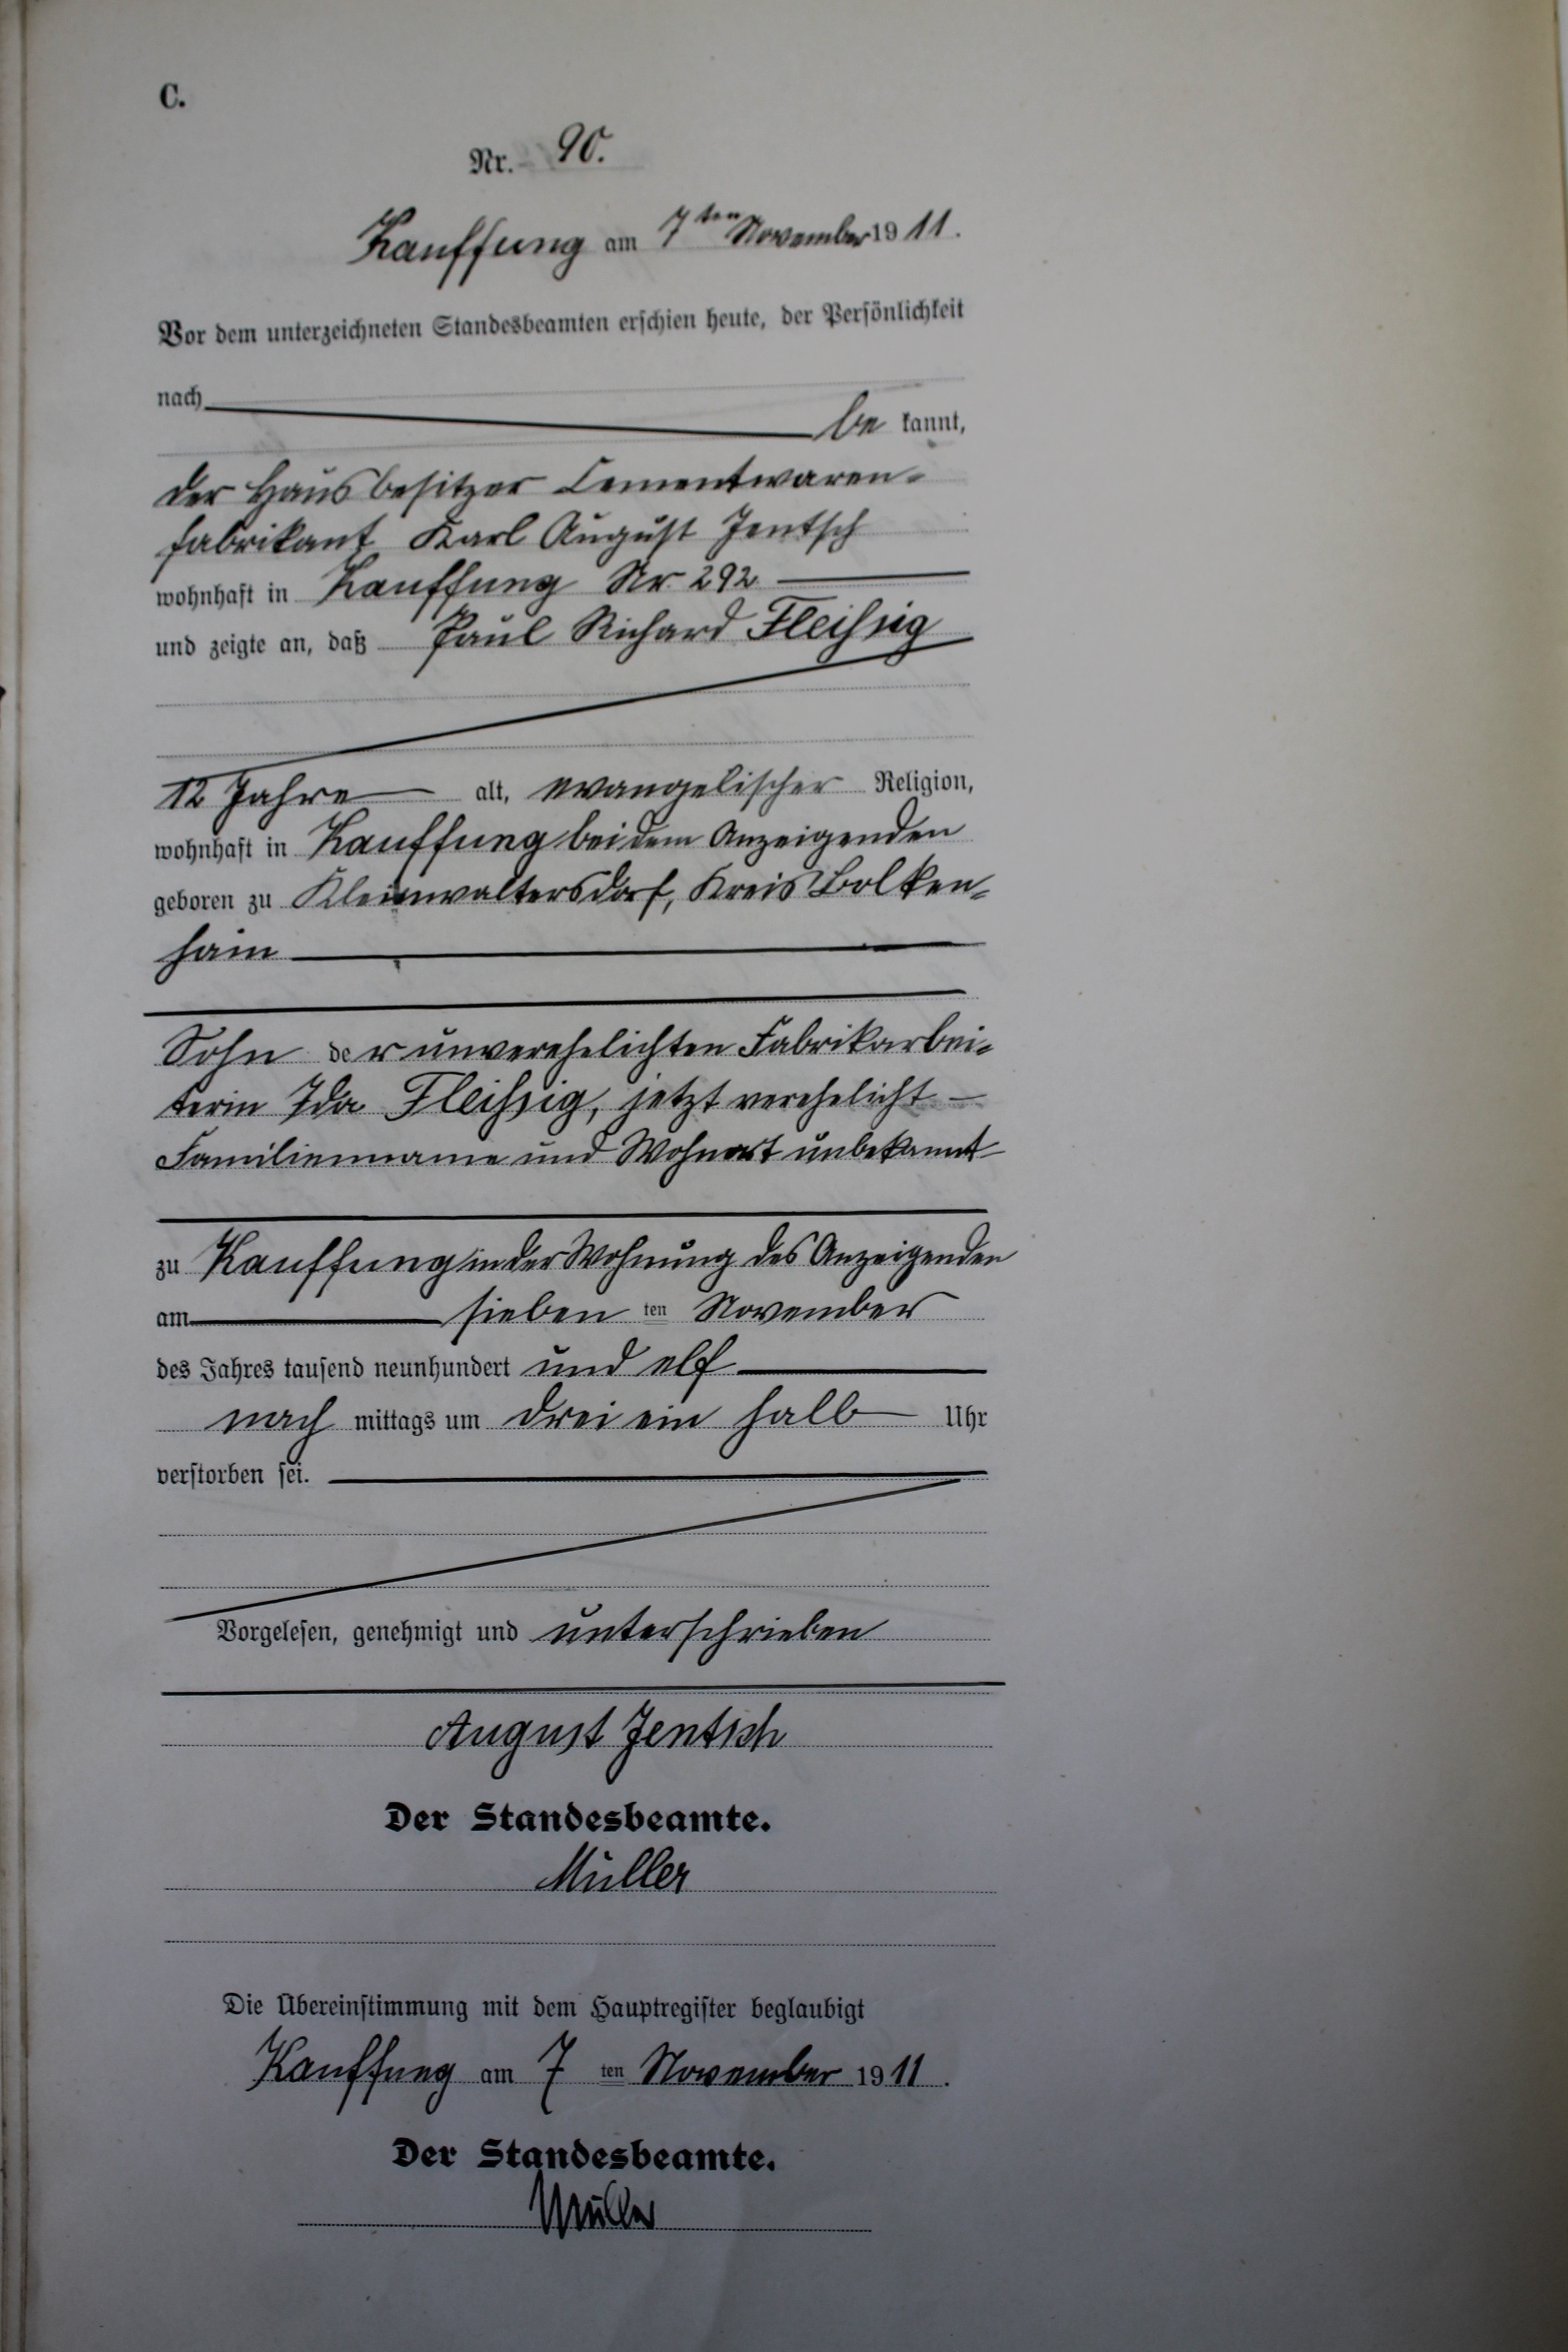 C.
Nr. 90.
Kauffung am 7ten November 1911.
Vor dem unterzeichneten Standesbeamten erschien heute, der Persönlichkeit
nach
be kannt,
der Hausbesitzer Cementwaren-
fabrikant Karl August Jentsch
wohnhaft in Kauffung Nr. 292
und zeigte an, daß Paul Richard Fleißig
12 Jahre alt, evangelischer Religion,
wohnhaft in Kauffung bei dem Anzeigenden
geboren zu Kleinwaltersdorf, Kreis Bolken-
hain
Sohn der unverehelichten Fabrikarbei-
terin Ida Fleißig, jetzt verehelicht -
Familienname und Wohnort unbekannt
zu Kauffung in der Wohnung des Anzeigenden
am sieben ten November
des Jahres tausend neunhundert und elf
nach mittags um drei ein halb Uhr
verstorben sei.
Vorgelesen, genehmigt und unterschrieben
August Jentsch
Der Standesbeamte.
Müller
Die Übereinstimmung mit dem Hauptregister beglaubigt
Kauffung am 7 ten November 1911.
Der Standesbeamte.
Müller